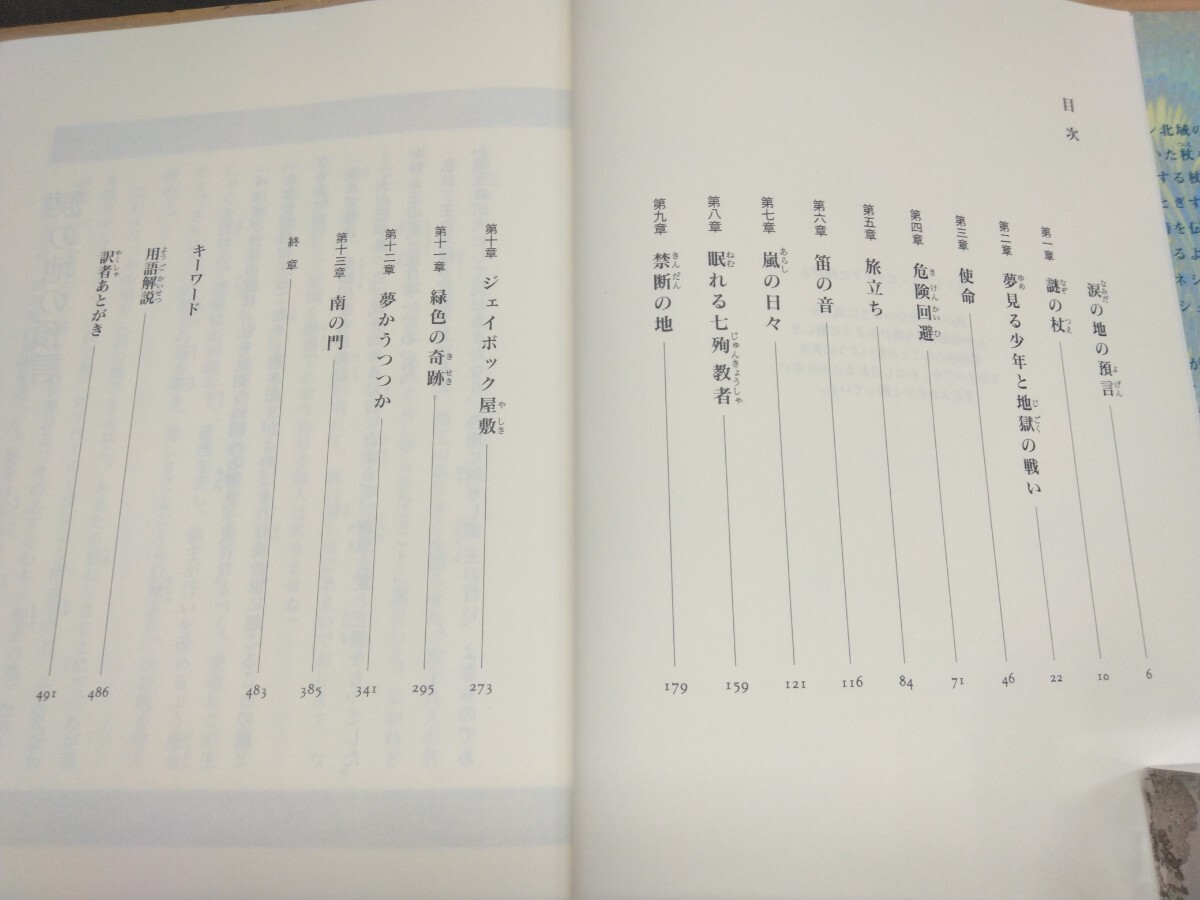 目次
涙の地の預言 6
第一章 謎の杖 10
第二章 夢見る少年と地獄の戦い 22
第三章 使命 46
第四章 危険回避 71
第五章 旅立ち 84
第六章 笛の音 116
第七章 嵐の日々 121
第八章 眠れる七殉教者 159
第九章 禁断の地 179
第十章 ジェイボック屋敷 273
第十一章 緑色の奇跡 295
第十二章 夢かうつつか 341
第十三章 南の門 385
終章 483
キーワード
用語解説 486
訳者あとがき 491